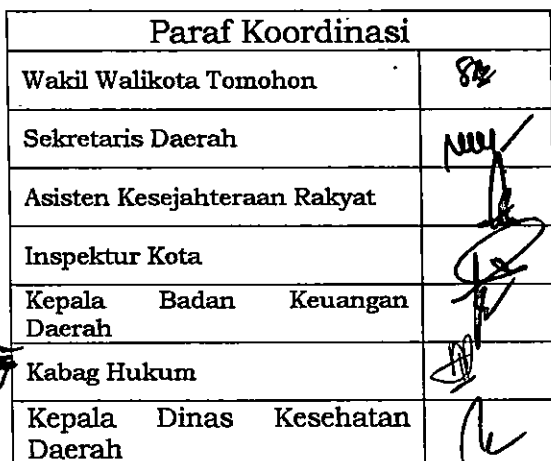 Paraf Koordinasi
Wakil Walikota Tomohon
Sekretaris Daerah
Asisten Kesejahteraan Rakyat
Inspektur Kota
Kepala Badan Keuangan
Daerah
Kabag Hukum
Kepala Dinas Kesehatan
Daerah